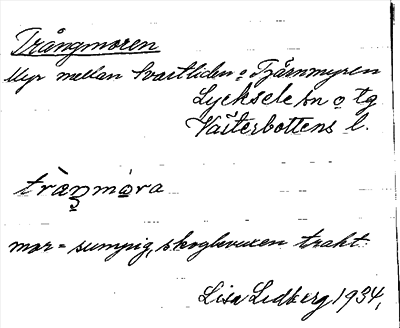 Trångmoren
Myr mellan Svartliden o Tjärnmyren
Lycksele sn o tg
Västerbottens l.
tràŋmóra
mor = sumpig, skogbevuxen trakt.
Lisa Lidberg 1934,